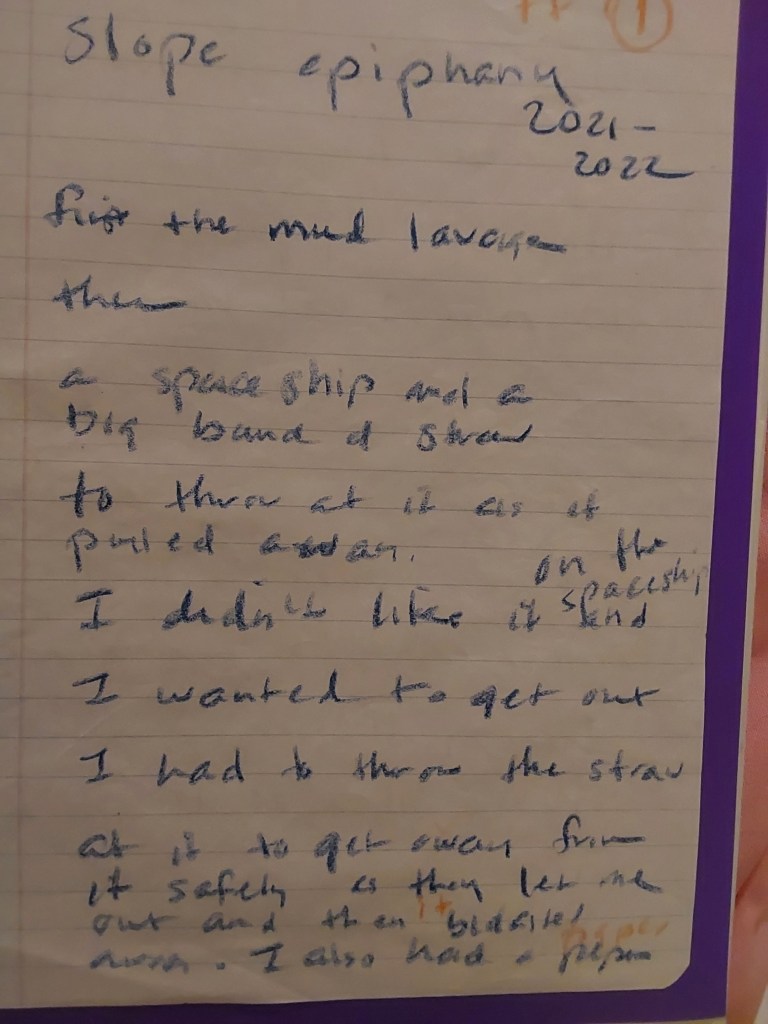 ①
Slope epiphany
2021-
2022
the mud lavage
then
a spaceship and a
big band of straw
to throw at it as it
pulled away.
on the
spaceship
I didn't like it and
I wanted to get out
I had to throw the straw
at it to get away from
it safely as they let me
out and then it
away. I also had a